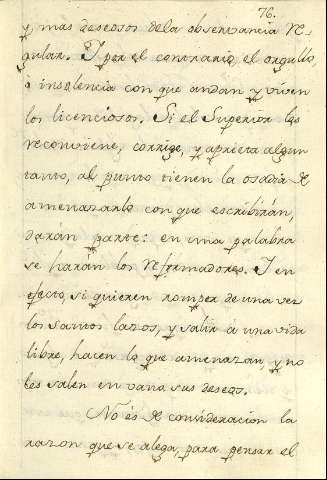 76.
y mas deseosos dela observancia re-
gular. I por el contrario el orgullo,
è insolencia con que andan y viven
los licenciosos. Si el Superior les
reconviene, corrige, y aprieta algun
tanto, al punto tienen la osadia de
amenazarle con que escribirán,
darán parte: en una palabra
se harán los reformadores. I en
efecto, si quieren romper de una vez
los santos lazos, y salir a una vida
libre, hacen lo que amenazan, y no
les salen en vano sus deseos.
No és de consideracion la
razon que se alega, para pensar el